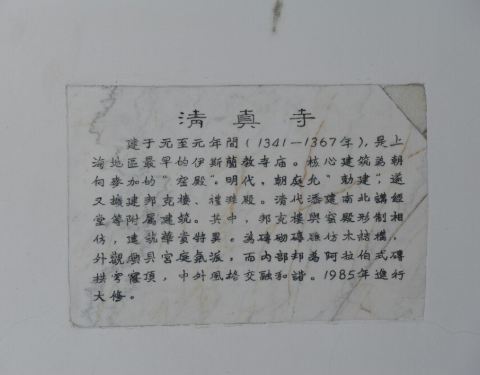 清真寺
建于元至元年間(1341—1367年),是上
海地區最早的伊斯蘭教寺庙。核心建筑為朝
向麥加的“窑殿”。明代。朝庭允“勅建”,遂
又擴建邦克樓、禮拜殿。清代添建南北講經
堂等附属建筑。其中,邦克樓與窑殿形制相
仿,建筑華貴特異。為磚砌磚雕仿木結構,
外觀頗具宮庭氣派,而内部却為阿拉伯式磚
拱穹窿頂,中外風格交融和諧。1985年進行
大修。